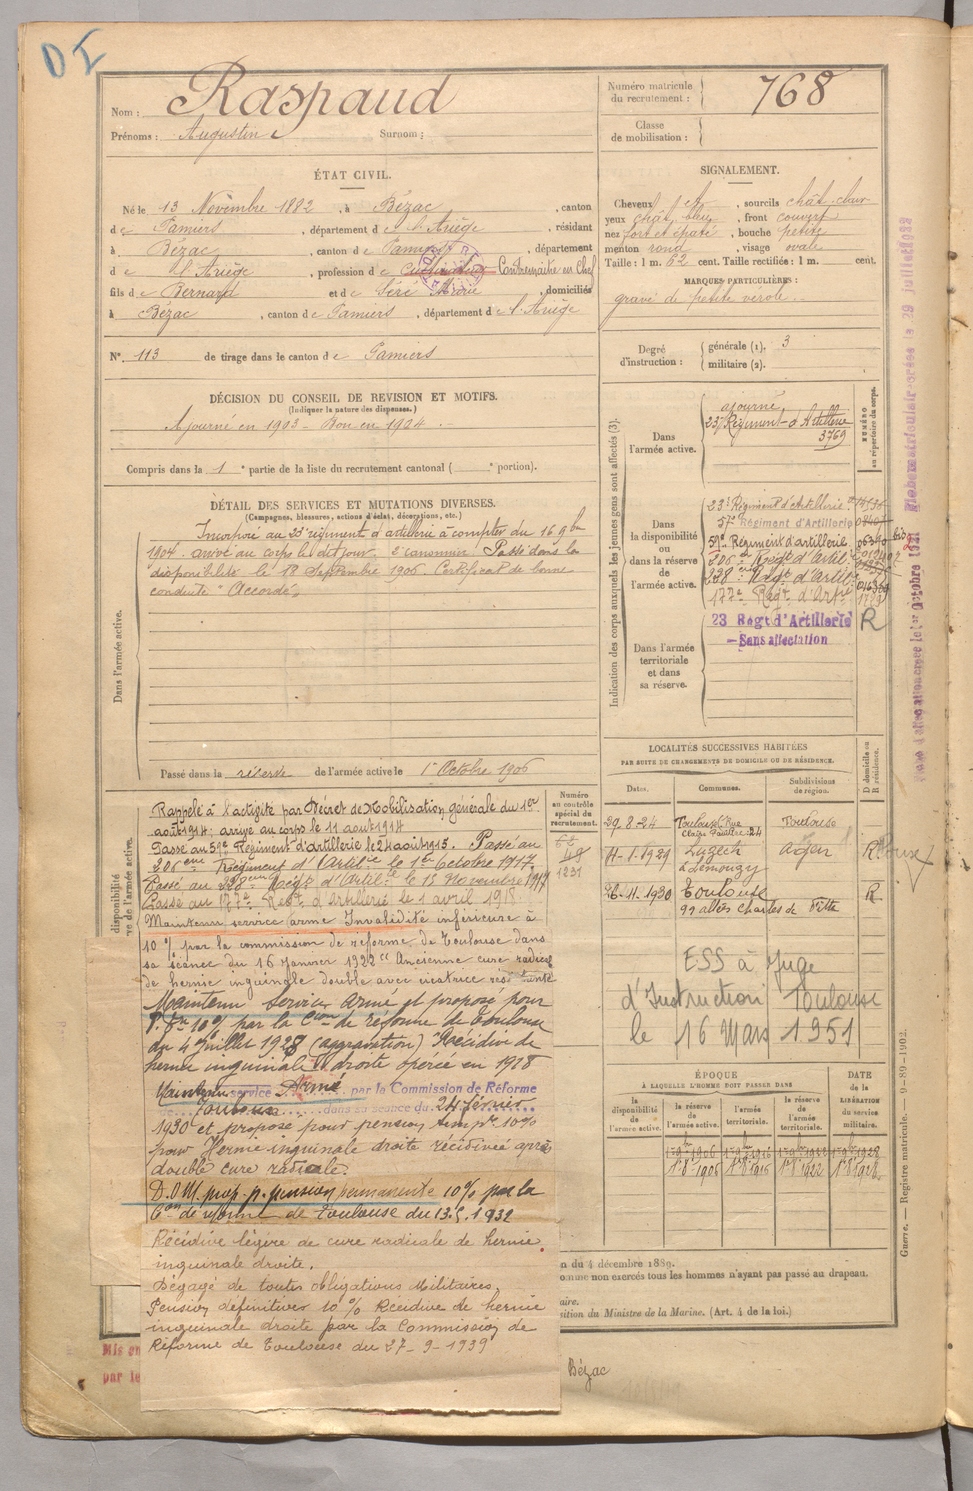 D I
Nom : Raspaud
Prénoms : Augustin Surnom :
Numéro matricule du recrutement : 768
Classe de mobilisation :
ÉTAT CIVIL.
Né le 13 Novembre 1882, à Bézac, canton
de Pamiers, département de l'Ariège, résidant
à Bézac, canton de Pamiers, département
de l'Ariège, profession de Cultivateur Contremaître en Chef
fils de Bernard et de Séré Marie, domiciliés
à Bézac, canton de Pamiers, département de l'Ariège
N°. 113 de tirage dans le canton de Pamiers
SIGNALEMENT.
Cheveux chât, sourcils chât-clair
yeux chât. bleu, front couvert
nez fort et épaté, bouche petite
menton rond, visage ovale
Taille : 1 m. 62 cent. Taille rectifiée : 1 m. cent.
MARQUES PARTICULIÈRES :
gravé de petite vérole
Degré d'instruction : générale (1). 3
militaire (2).
DÉCISION DU CONSEIL DE REVISION ET MOTIFS.
(Indiquer la nature des dispenses.)
Ajourné en 1903 - Bon en 1904
Compris dans la 1e partie de la liste du recrutement cantonal ( e portion).
DÉTAIL DES SERVICES ET MUTATIONS DIVERSES.
(Campagnes, blessures, actions d'éclat, décorations, etc.)
Dans l'armée active.
Incorporé au 23e régiment d'artillerie à compter du 16 9bre
1904. arrivé au corps le dit jour. 2e canonnier Passé dans la
disponibilité le 18 Septembre 1906. Certificat de bonne
conduite "Accordé"
Passé dans la réserve de l'armée active le 1er Octobre 1906
Indication des corps auxquels les jeunes gens sont affectés (3).
NUMÉRO au répertoire du corps.
Dans l'armée active.
ajourné
23e Régiment d'Artillerie
3769
Dans la disponibilité ou dans la réserve de l'armée active.
23e Régiment d'Artillerie
57e Régiment d'Artillerie
57e Régiment d'artillerie
206e Regt d'Artie
228e Regt d'Artie
177e Regt d'Artie
Dans l'armée territoriale et dans sa réserve.
23 Regt d'Artillerie R
Sans affectation
Rappelé à l'activité par Décret de Mobilisation générale du 1er
août 1914; arrivé au corps le 11 août 1914
Passé au 57e Régiment d'artillerie le 21 août 1915. Passé au
206eme Régiment d'Artilie le 1er Octobre 1917
Passé au 228e Regt d'Artilie le 15 Novembre 1917
Passé au 177e Regt d'Artillerie le 1 avril 1918.
Maintenu service armé Invalidité inférieure à
10 % par la commission de réforme de Toulouse dans
sa séance du 16 Janvier 1922 "Ancienne cure radicale
de hernie inguinale double avec cicatrice résistante
Maintenu Service Armé et proposé pour
P. Tre 10% par la Cion de réforme de Toulouse
du 4 Juillet 1928 (aggravation) Récidive de
hernie inguinale droite opérée en 1918
Maintenu service Armé par la Commission de Réforme
de Toulouse dans sa séance du 24 février
1930 et proposé pour pension tempre 10%
pour Hernie inguinale droite récidivée après
double cure radicale.
D.O.M. prop. p. pension permanente 10% par la
Con de réforme de Toulouse du 13.5.1932
Récidive légère de cure radicale de hernie
inguinale droite.
Dégagé de toutes obligations Militaires.
Pension définitive 10 % Récidive de hernie
inguinale droite par la Commission de
Réforme de Toulouse du 27-9-1939
Numéro au contrôle spécial du recrutement.
49
1231
LOCALITÉS SUCCESSIVES HABITÉES
PAR SUITE DE CHANGEMENTS DE DOMICILE OU DE RÉSIDENCE.
Dates. Communes. Subdivisions de région. D domicile ou R résidence.
29.8-24 Toulouse Rue Claire Pauilhac 24 Toulouse
11-1.1929 Luzech Agen R
26-11-1930 Toulouse R
99 allées Charles de Fitte
ESS à Juge
d'Instruction Toulouse
le 16 Mars 1951
ÉPOQUE
À LAQUELLE L'HOMME DOIT PASSER DANS
DATE de la LIBÉRATION du service militaire.
la disponibilité de l'armée active. la réserve de l'armée active. l'armée territoriale. la réserve de l'armée territoriale.
1er 8bre 1906 1er 8bre 1916 1er 8bre 1922 1er 8bre 1928
n du 4 décembre 1889.
omme non exercés tous les hommes n'ayant pas passé au drapeau.
aire.
sition du Ministre de la Marine. (Art. 4 de la loi.)
Guerre. — Registre matricule. — 9-89-1902.
Bézac
Mis en
par le